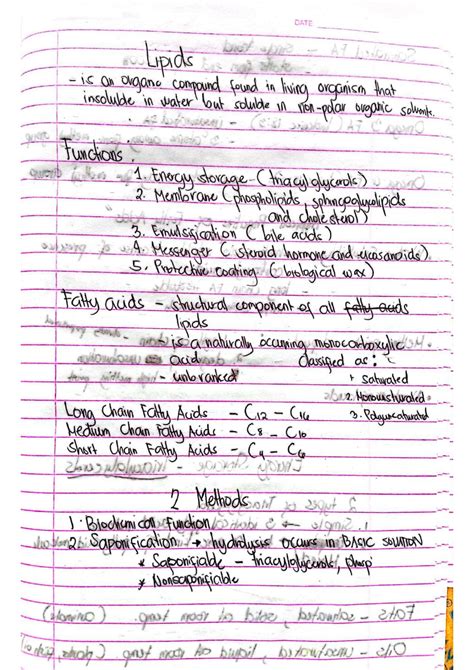 DATE
Lipids
- is an organic compound found in living organism that
insoluble in water but soluble in non-polar organic solvents.
Functions:
1. Energy storage (triacylglycerols)
2. Membrane (phospholipids, sphingoglycolipids
and cholesterol)
3. Emulsification (bile acids)
4. Messenger (steroid hormone and eicosanoids)
5. Protective coating (biological wax)
Fatty acids - structural component of all fatty acids
lipids
- is a naturally occurring monocarboxylic
acid classified as:
- unbranked 1 saturated
2. Monounsaturated
3. Polyunsaturated
Long Chain Fatty Acids - C12 - C16
Medium Chain Fatty Acids - C8 - C10
Short Chain Fatty Acids - C4 - C6
2 Methods
1. Biochemical Function
2. Saponification → hydrolysis occurs in BASIC SOLUTION
* Saponifiable - triacylglycerols, phospi
* Nonsaponifiable